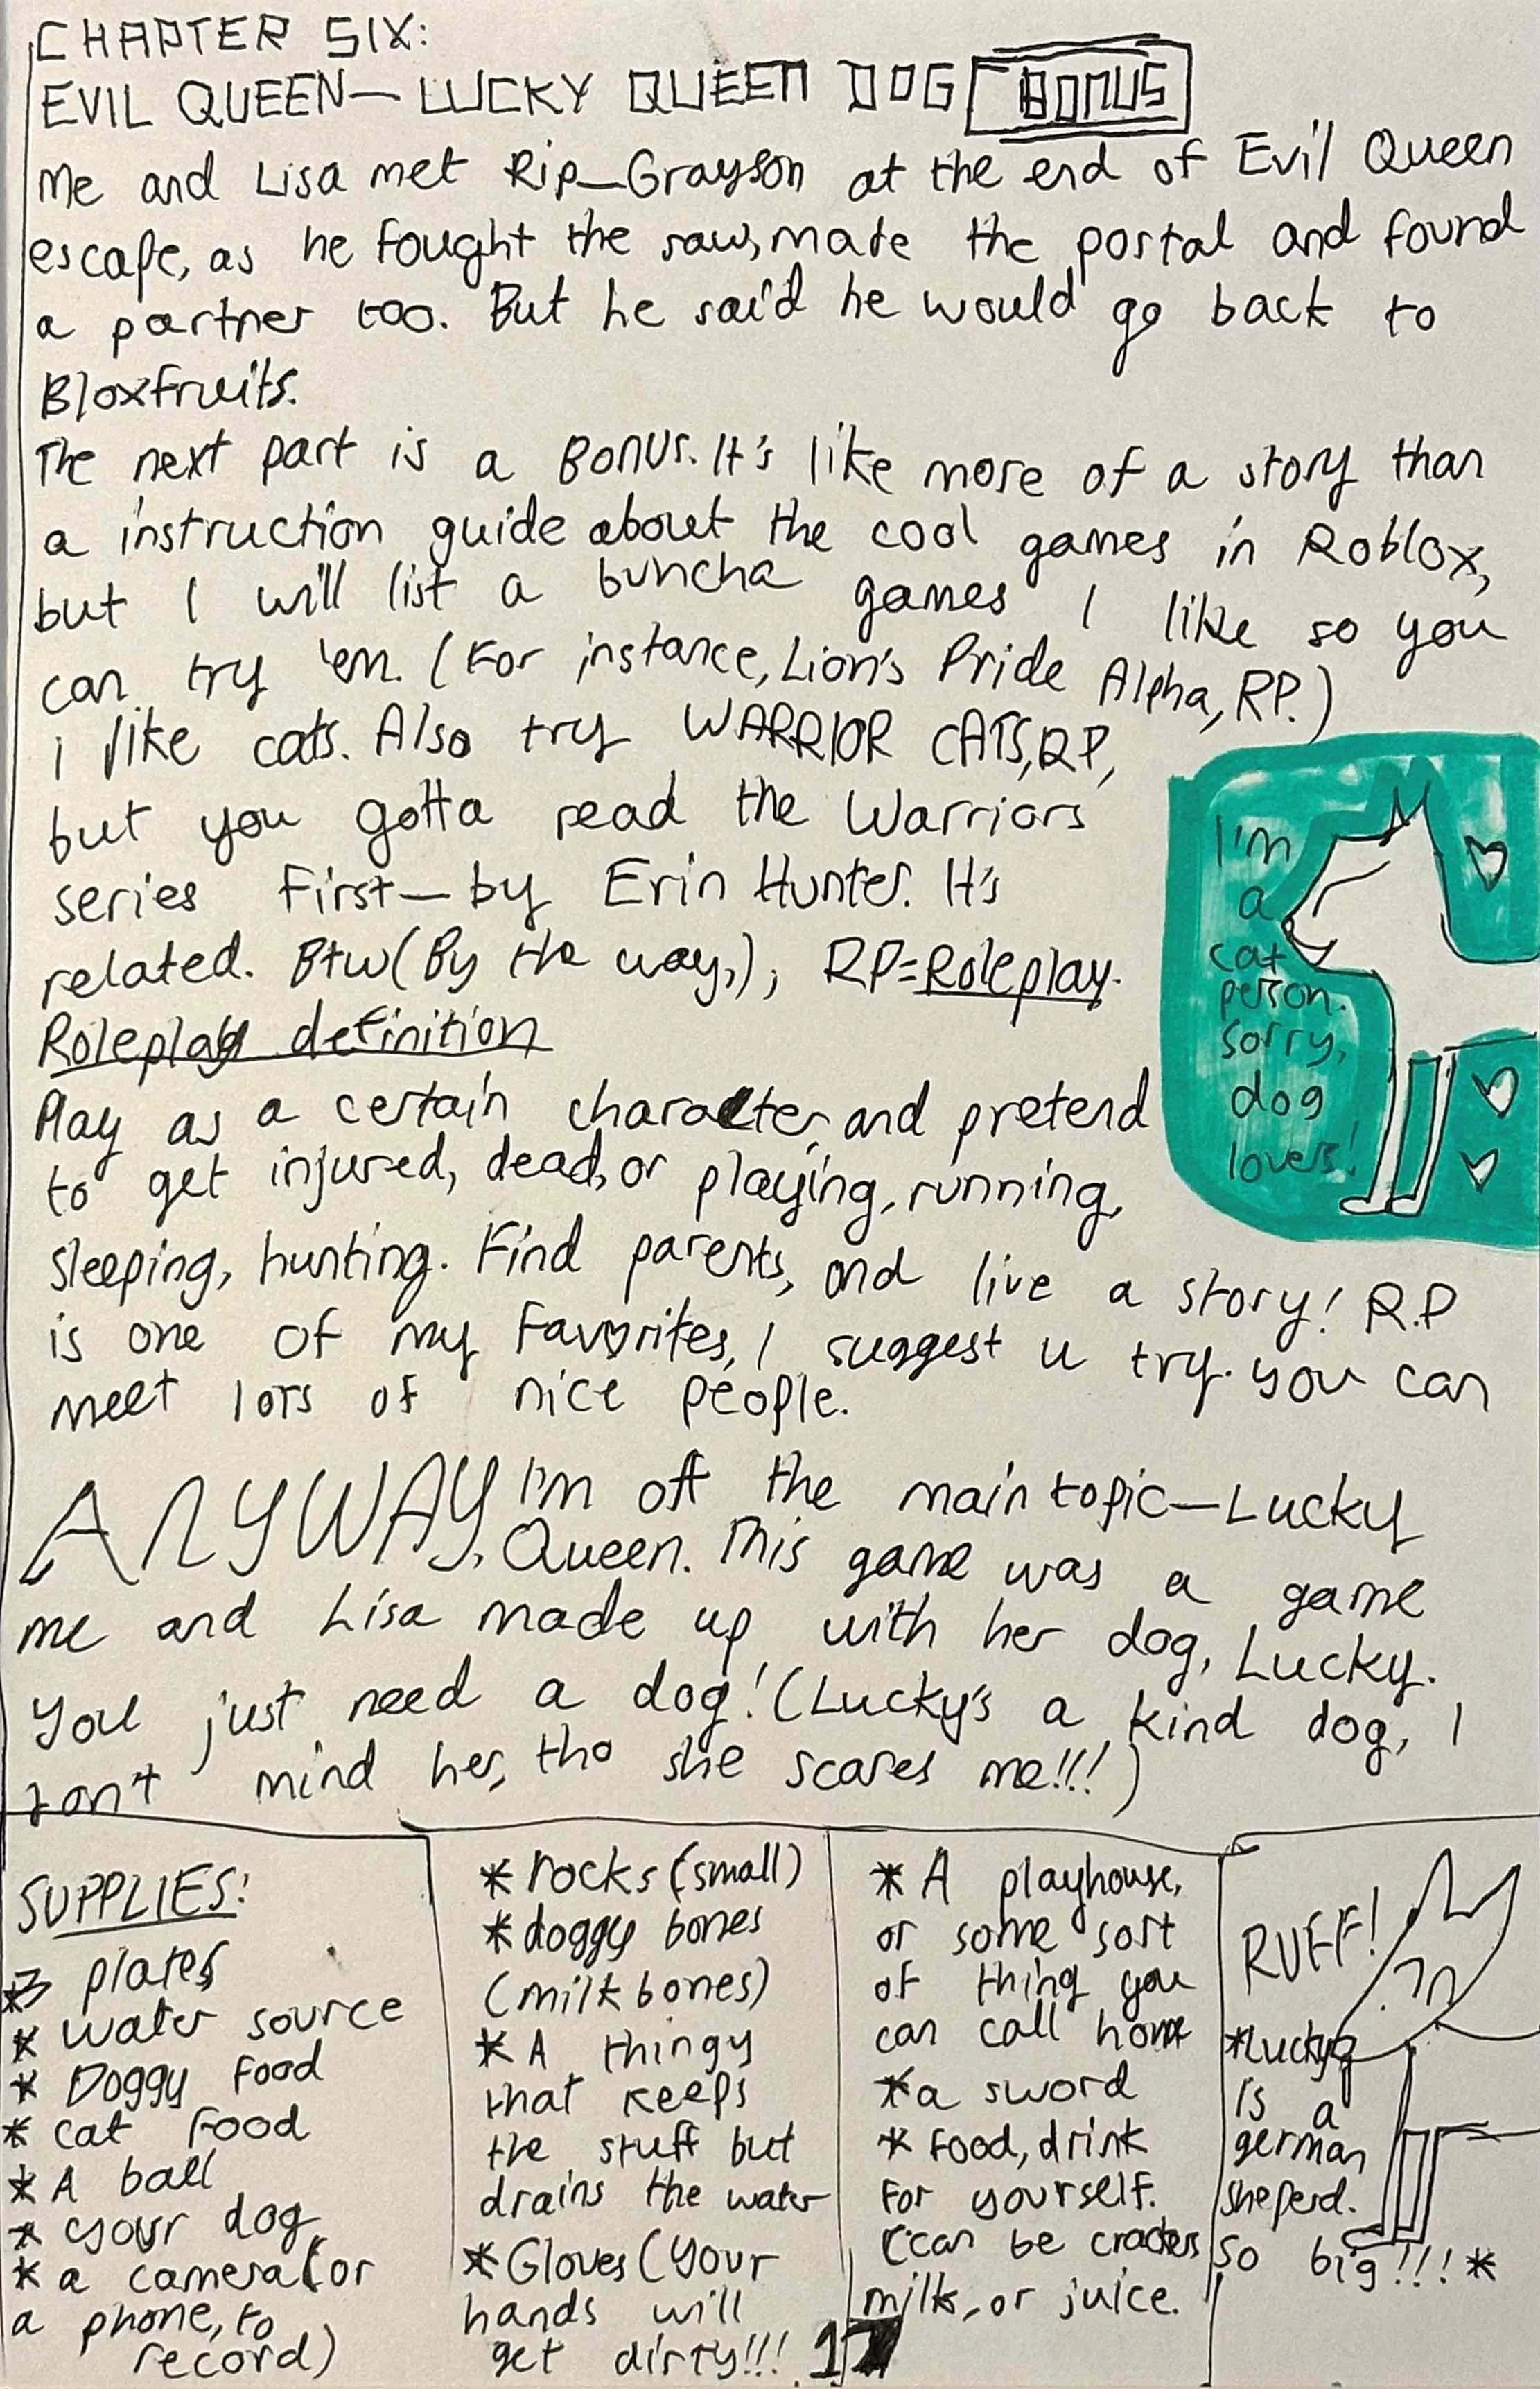 CHAPTER SIX:
EVIL QUEEN— LUCKY QUEEN DOG BONUS
Me and Lisa met Rip_Grayson at the end of Evil Queen
escape, as he fought the saw, made the portal and found
a partner too. But he said he would go back to
Bloxfruits.
The next part is a BONUS. It's like more of a story than
a instruction guide about the cool games in Roblox,
but I will list a buncha games I like so you
can try 'em. (For instance, Lion's Pride Alpha, RP.)
i like cats. Also try WARRIOR CATS, RP,
but you gotta read the Warriors
series first—by Erin Hunter. It's
related. Btw (By the way,), RP=Roleplay.
Roleplay definition
Play as a certain character, and pretend
to get injured, dead, or playing, running,
sleeping, hunting. Find parents, and live a story! R.P
is one of my favorites, I suggest u try. you can
meet lots of nice people.
I'm
a
cat
person.
sorry,
dog
lovers!
ANYWAY, I'm off the main topic—Lucky
Queen. This game was a game
me and Lisa made up with her dog, Lucky.
You just need a dog! (Lucky's a kind dog, I
don't mind her, tho she scares me!!!)
SUPPLIES:
*3 plates
* water source
* Doggy food
* cat food
* A ball
* your dog
* a camera (or
a phone, to
record)
* rocks (small)
* doggy bones
(milk bones)
* A thingy
that keeps
the stuff but
drains the water
* Gloves (your
hands will
get dirty!!!
* A playhouse,
or some sort
of thing you
can call home
* a sword
* food, drink
for yourself.
(can be crackers
milk, or juice.
RUFF!
*Lucky
is a
german
sheperd.
So big!!! *
17